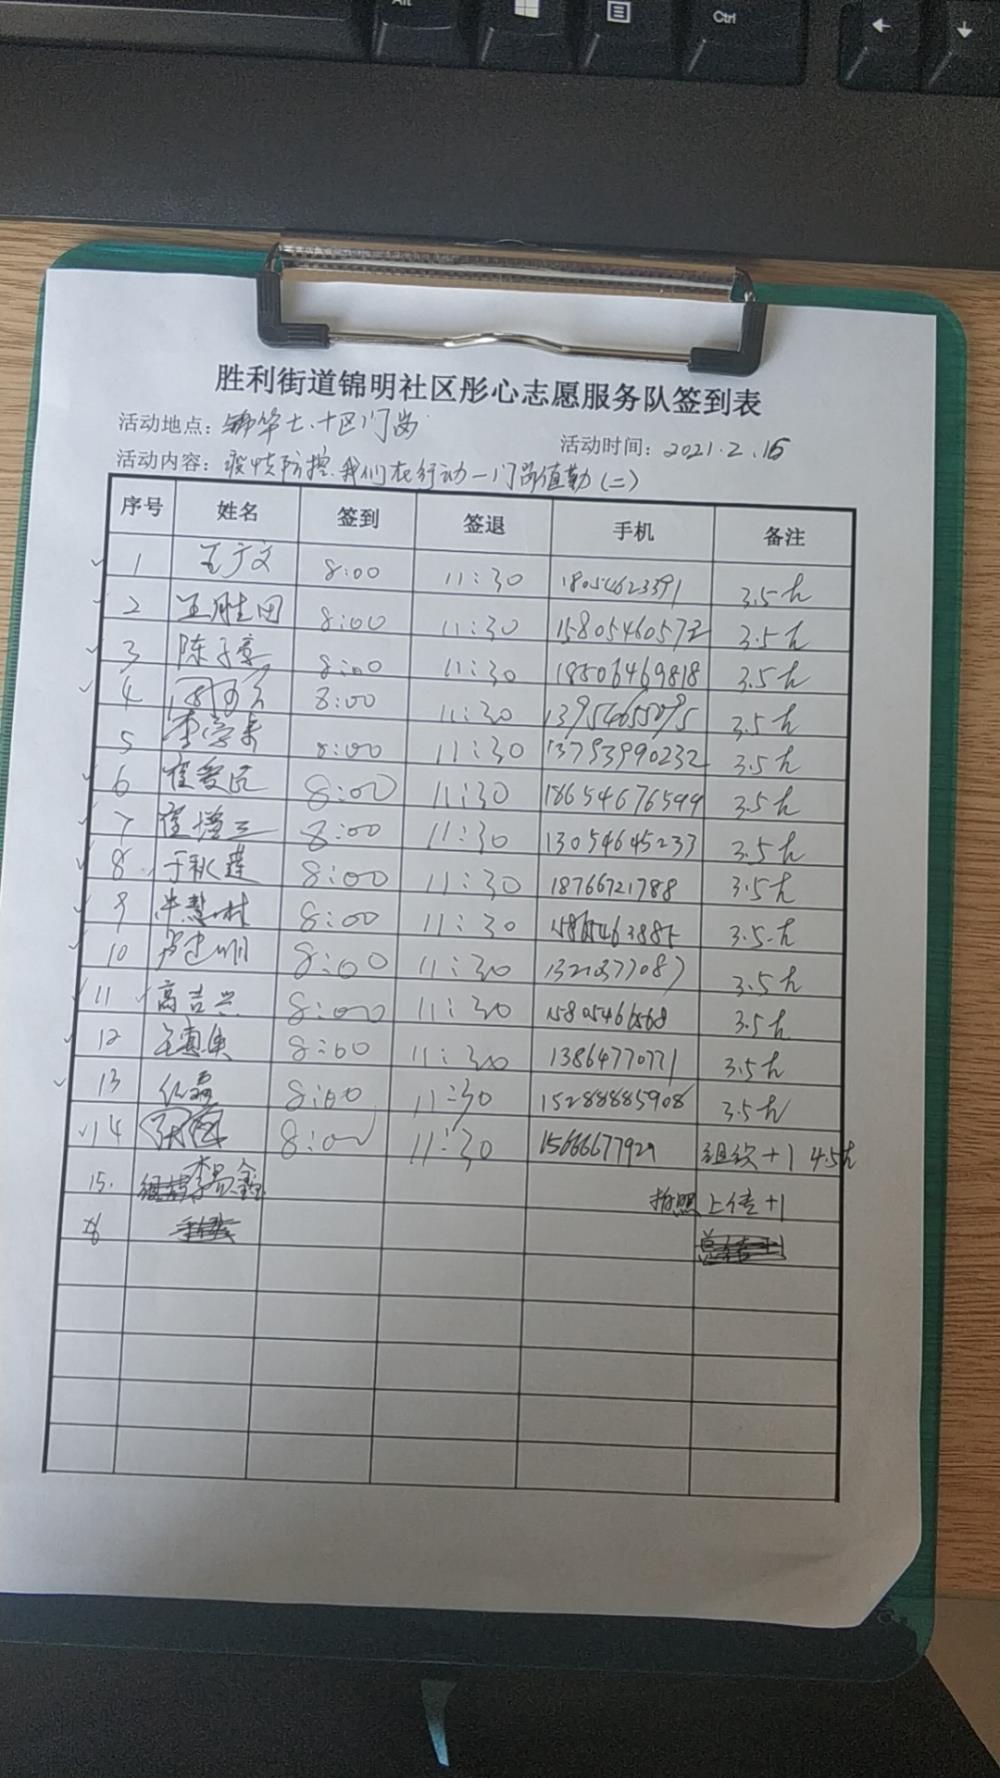 Alt
Ctrl
胜利街道锦明社区彤心志愿服务队签到表
活动地点：锦华七、十区门岗
活动时间：2021.2.16
活动内容：疫情防控.我们在行动—门岗值勤（二）
序号 姓名 签到 签退 手机 备注
1 王广文 8:00 11:30 18054623391 3.5h
2 王胜田 8:00 11:30 15805460572 3.5h
3 陈子亭 8:00 11:30 18506469818 3.5h
4 8:00 11:30 13954655095 3.5h
5 李学来 8:00 11:30 13793990232 3.5h
6 崔爱民 8:00 11:30 18654676599 3.5h
7 崔增三 8:00 11:30 13054645233 3.5h
8 于秋莲 8:00 11:30 18766721788 3.5h
9 8:00 11:30 3.5h
10 卢建明 8:00 11:30 3.5h
11 高吉兴 8:00 11:30 3.5h
12 8:00 11:30 13864770771 3.5h
13 仁磊 8:00 11:30 15288885908 3.5h
14 8:00 11:30 15666677929 组织+1 4.5h
15. 李景鑫 拍照上传+1